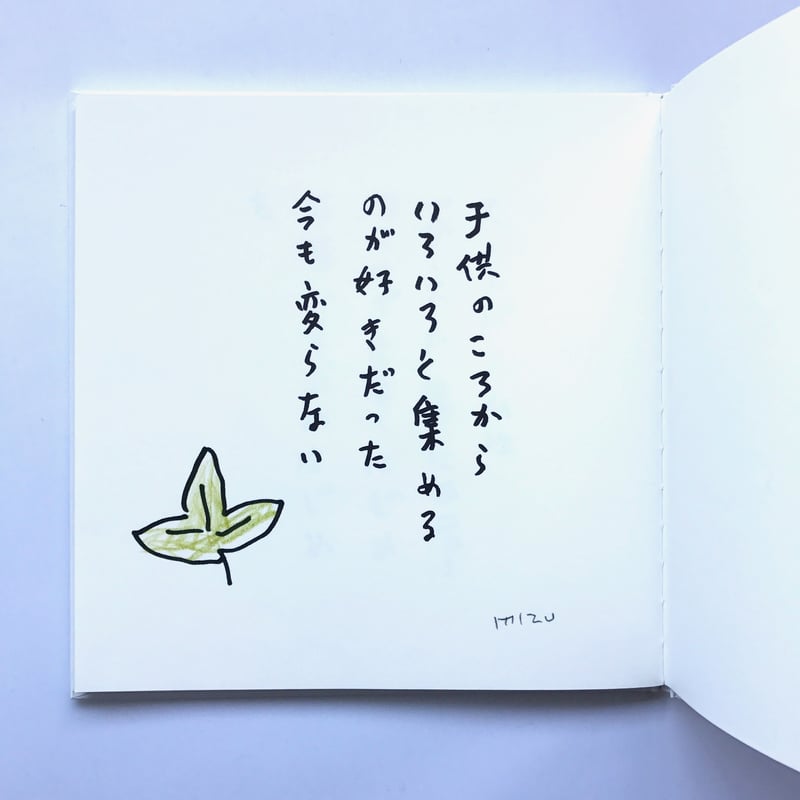 子供のころから
いろいろと集める
のが好きだった
今も変らない
MIZU